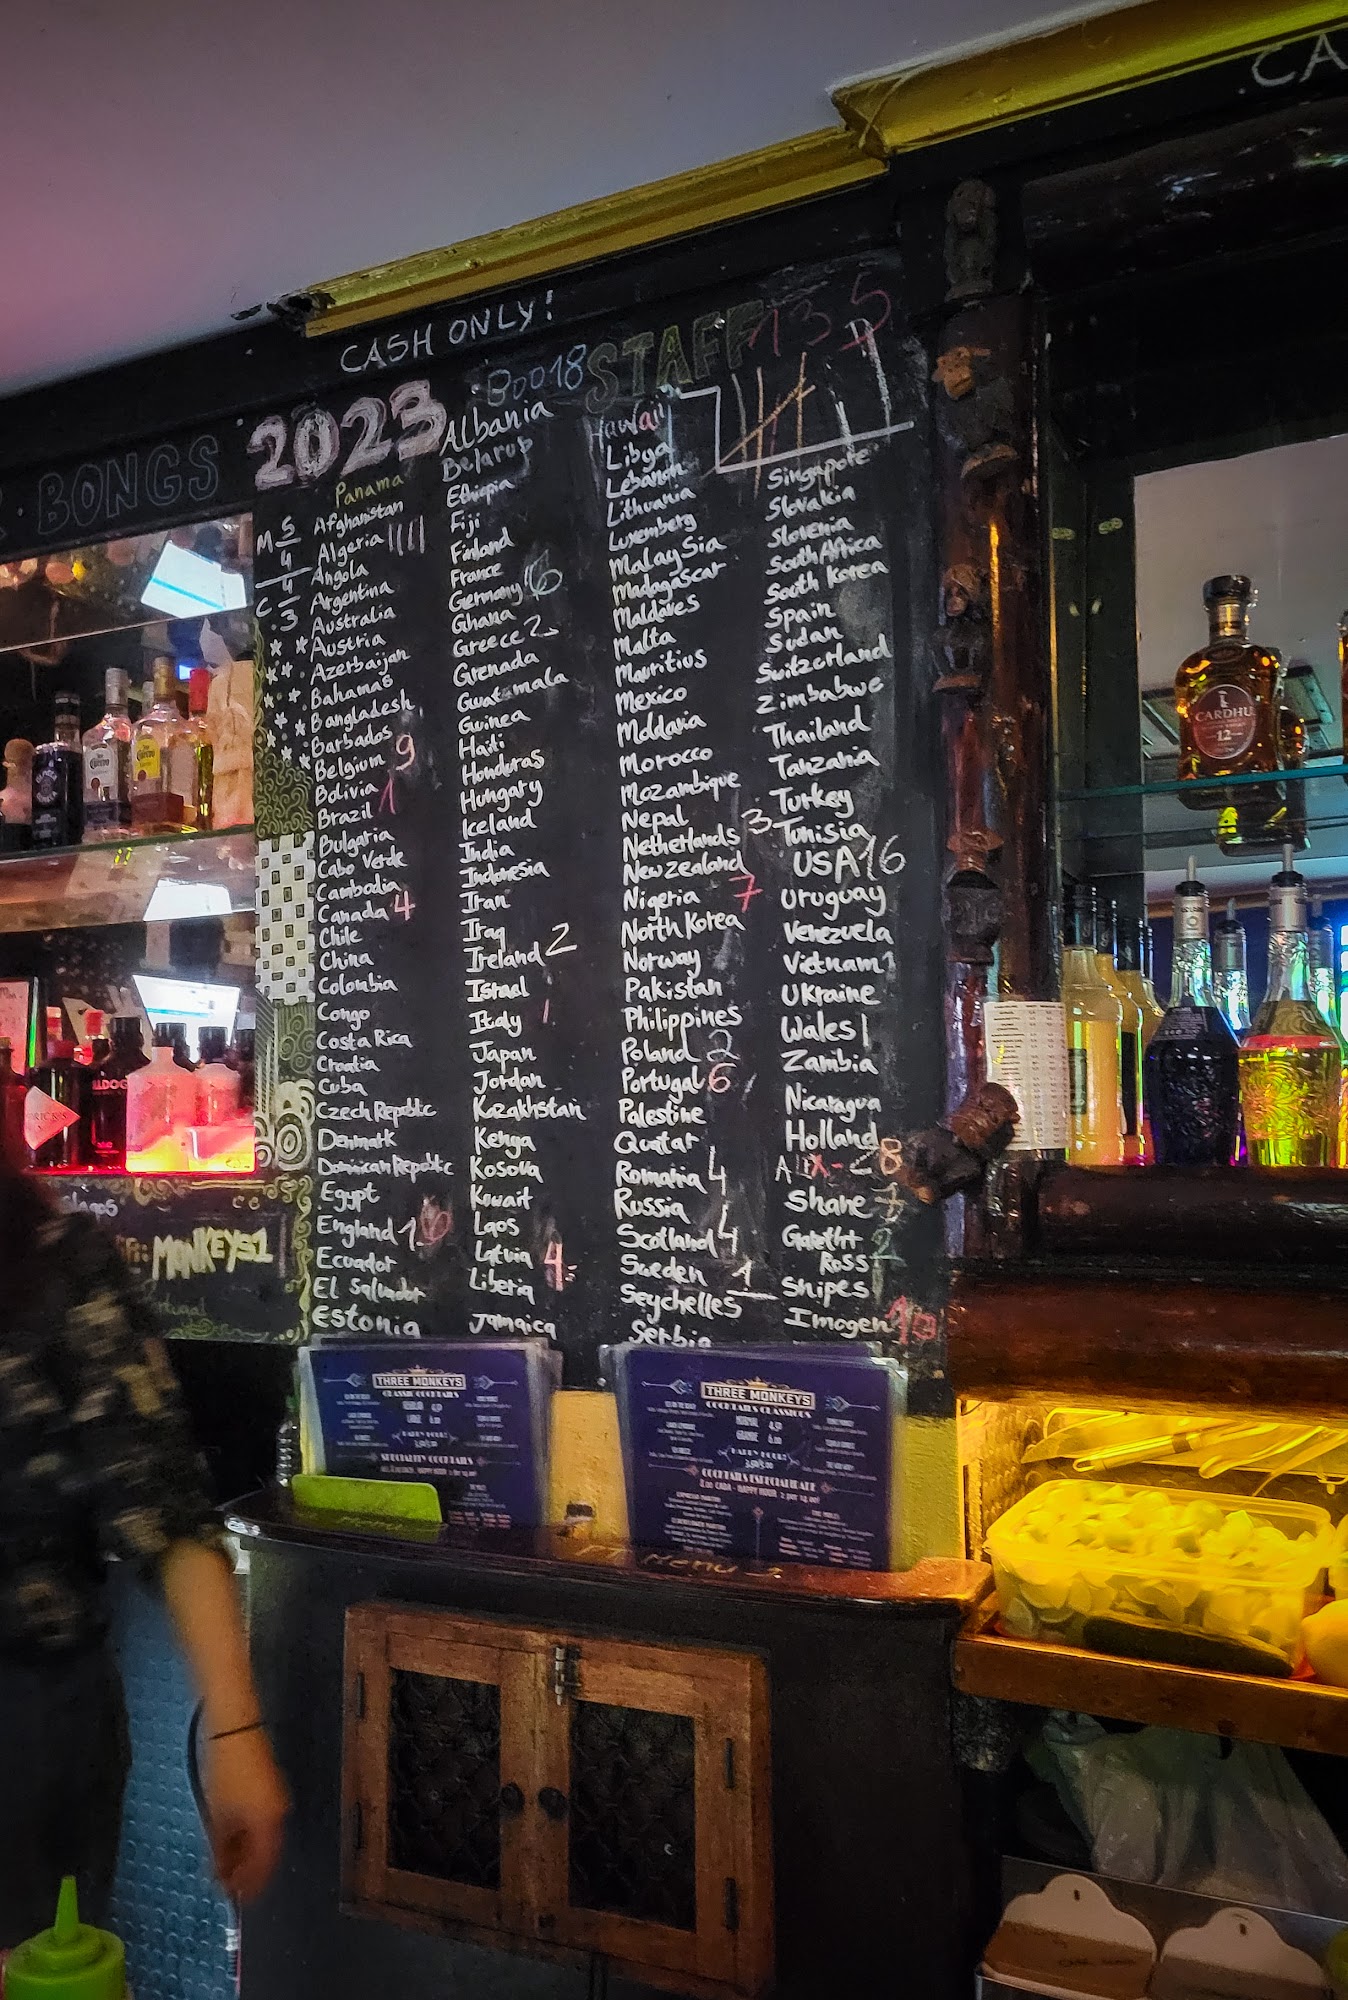 CA
CASH ONLY!
BONGS
2023
Boo18
STAFF 135
Panama
Afghanistan
Algeria
Angola
Argentina
Australia
Austria
Azerbaijan
Bahamas
Bangladesh
Barbados
Belgium 9
Bolivia
Brazil 1
Bulgaria
Cabo Verde
Cambodia
Canada 4
Chile
China
Colombia
Congo
Costa Rica
Croatia
Cuba
Czech Republic
Denmark
Dominican Republic
Egypt
England
Ecuador
El Salvador
Estonia
Albania
Belarus
Ethiopia
Fiji
Finland
France
Germany 6
Ghana
Greece 2
Grenada
Guatamala
Guinea
Haiti
Honduras
Hungary
Iceland
India
Indonesia
Iran
Iraq
Ireland 2
Israel
Italy
Japan
Jordan
Kazakhstan
Kenya
Kosova
Kuwait
Laos
Latvia 4
Liberia
Jamaica
Hawaii
Libya
Lebanon
Lithuania
Luxemberg
Malaysia
Madagascar
Maldives
Malta
Mauritius
Mexico
Moldavia
Morocco
Mozambique
Nepal
Netherlands 3
New zealand
Nigeria 7
North Korea
Norway
Pakistan
Philippines
Poland 2
Portugal 6
Palestine
Quatar
Romania 4
Russia
Scotland 4
Sweden 1
Seychelles
Serbia
Singapore
Slovakia
Slovenia
South Africa
South Korea
Spain
Sudan
Switzerland
Zimbabwe
Thailand
Tanzania
Turkey
Tunisia
USA 16
Uruguay
Venezuela
Vietnam 1
Ukraine
Wales |
Zambia
Nicaragua
Holland
Alex
Shane
Ross
Snipes
Imogen 10
M 5
4
C 4
3
MONKEYS1
Portugal
CARDHU
12
THREE MONKEYS
CLASSIC COCKTAILS
REGULAR 4,50
LARGE 6,00
HAPPY HOUR!
SPECIALITY COCKTAILS
THREE MONKEYS
COCKTAILS CLASSICOS
NORMAL 4,50
GRANDE 6,00
HAPPY HOUR!
COCKTAILS ESPECIALIDADE
8,00 CADA - HAPPY HOUR 2 por 14,00!
PT Menu